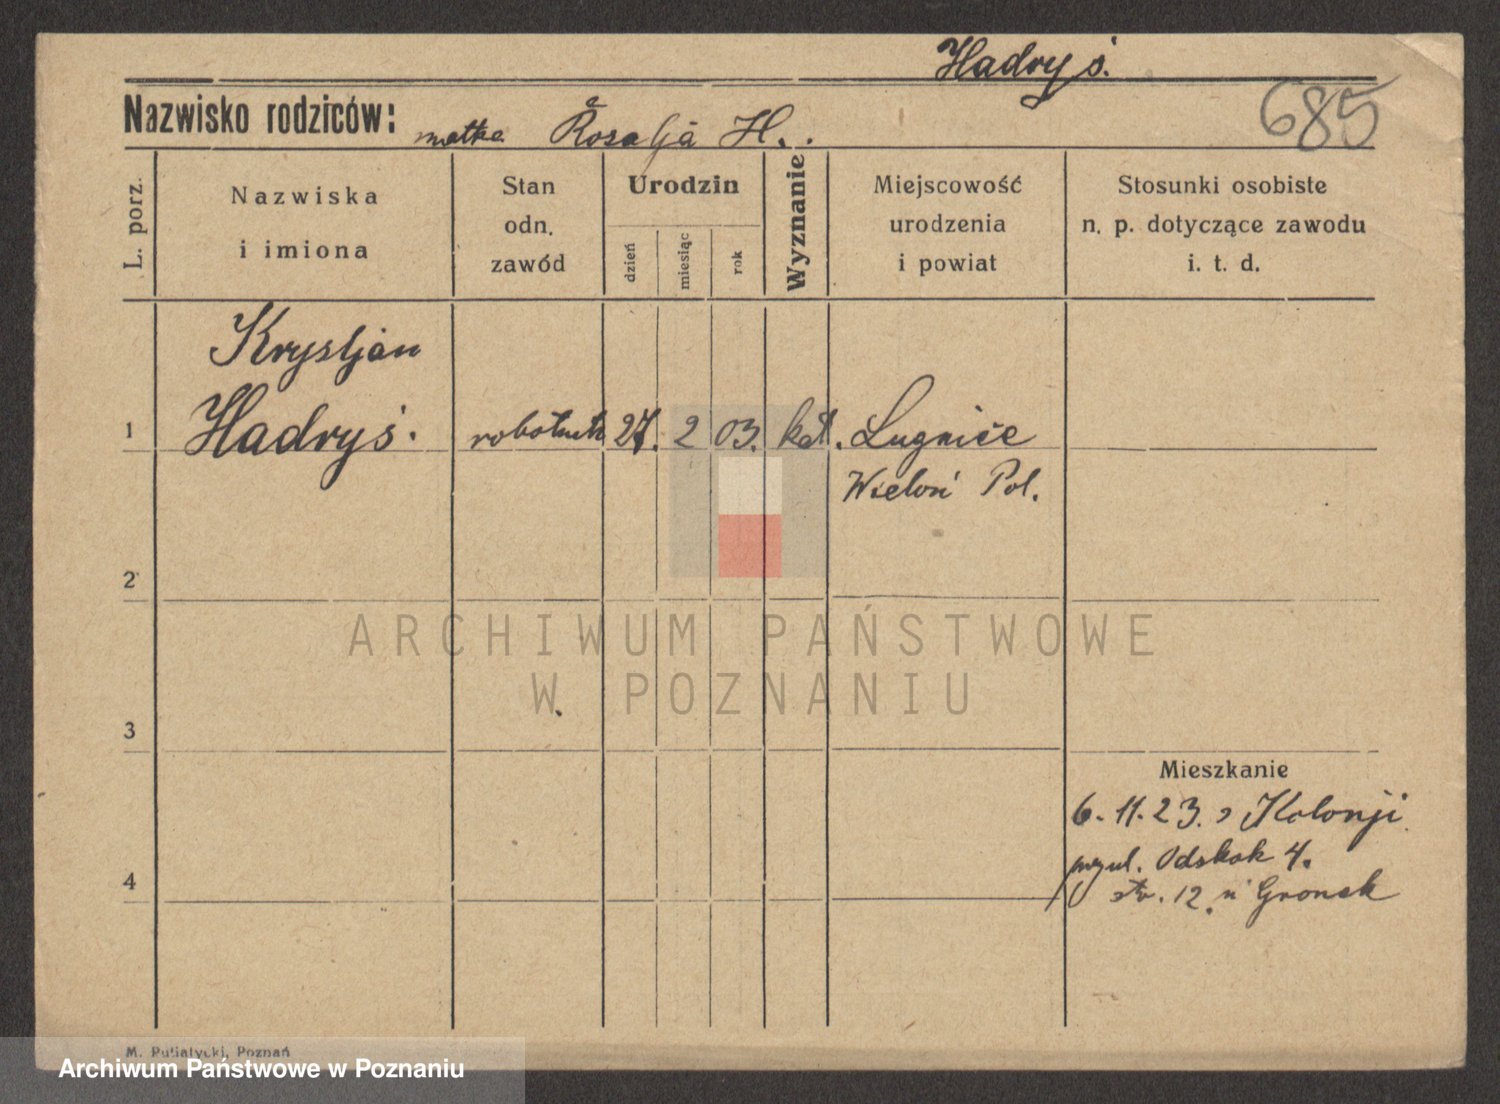 Hadryś.
685
Nazwisko rodziców: matka Rozalja H.
L. porz.
Nazwiska
i imiona
Stan
odn.
zawód
Urodzin
dzień
miesiąc
rok
Wyznanie
Miejscowość
urodzenia
i powiat
Stosunki osobiste
n. p. dotyczące zawodu
i. t. d.
Krystjan
1 Hadryś. robotnik 27. 2 03. kat. Lugnice
Wieloń Pol.
2
3
Mieszkanie
6. 11. 23. z Kolonji
przul. Odskok 4.
4
str. 12. u Gronek
ARCHIWUM PAŃSTWOWE
W POZNANIU
M. Putiatycki, Poznań
Archiwum Państwowe w Poznaniu